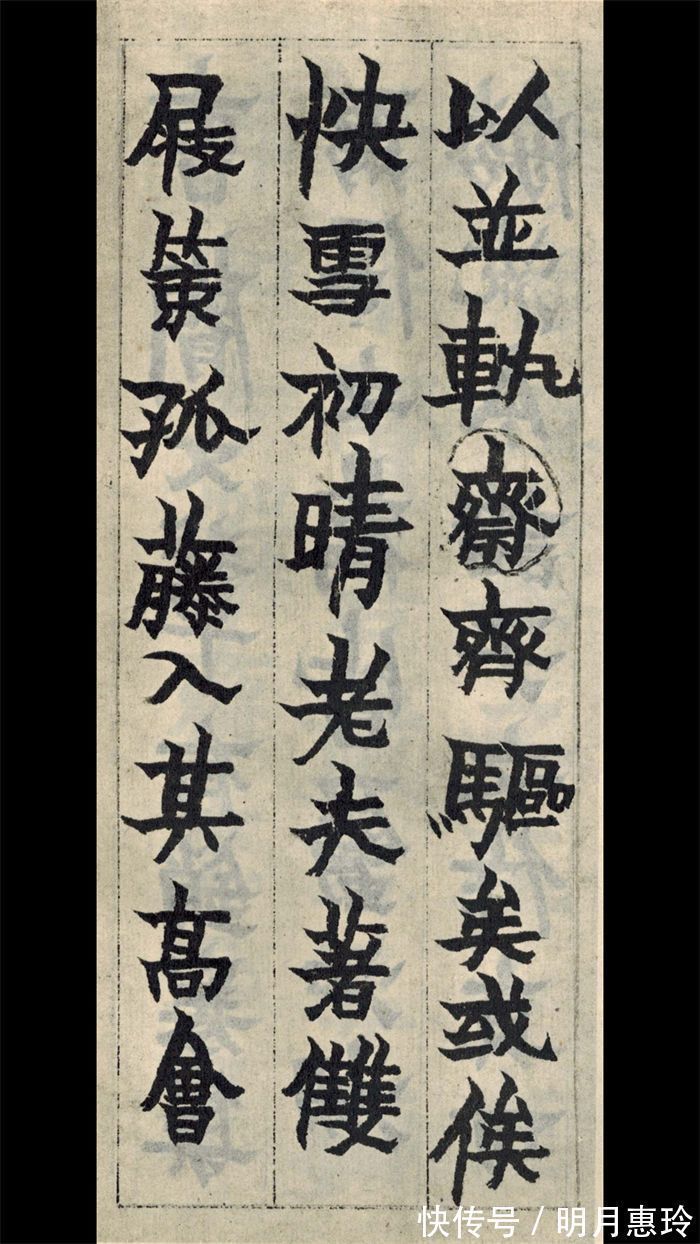 以並軌齋齊驅矣或俟
快雪初晴老夫著雙
屐策孤藤入其高會
快传号/明月惠玲